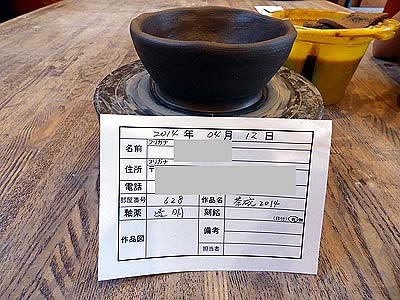 2014 年 04 月 12 日
フリガナ
名前
フリガナ
住所 〒
電話
部屋番号 628 作品名 茶碗2014
釉薬 透明 刻銘
作品図 備考
担当者